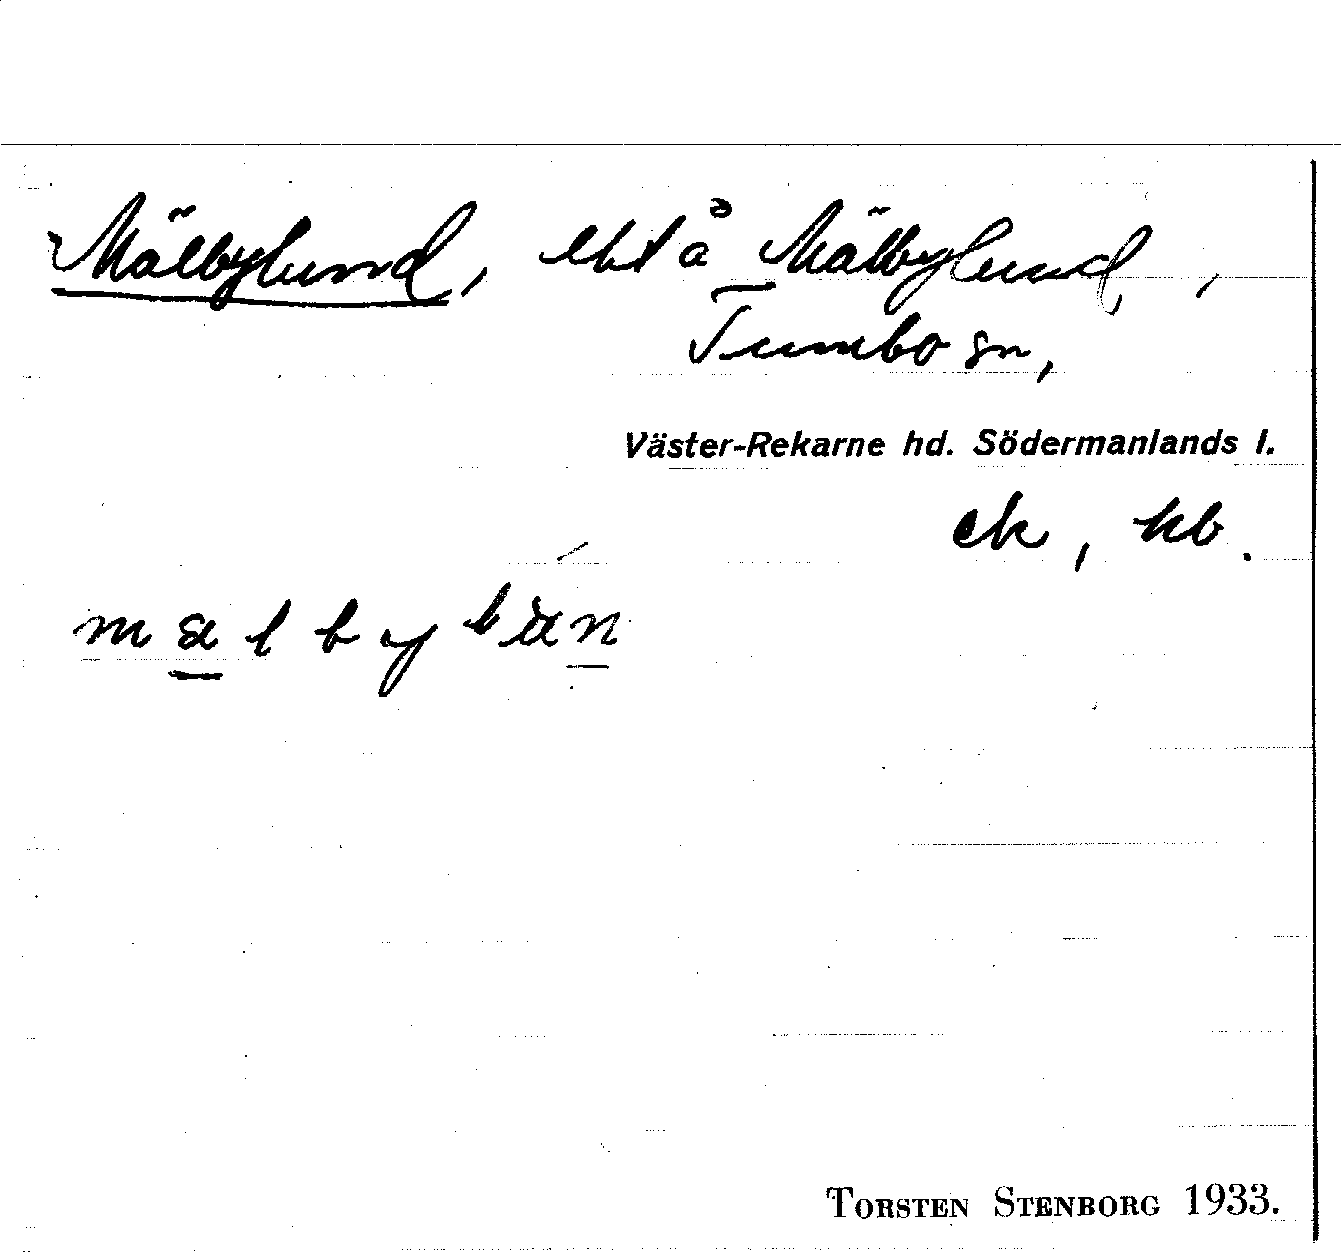 Mälbylund, lht å Mälbylund,
Tumbo sn,
Väster-Rekarne hd. Södermanlands l.
ek, kb.
TORSTEN STENBORG 1933.